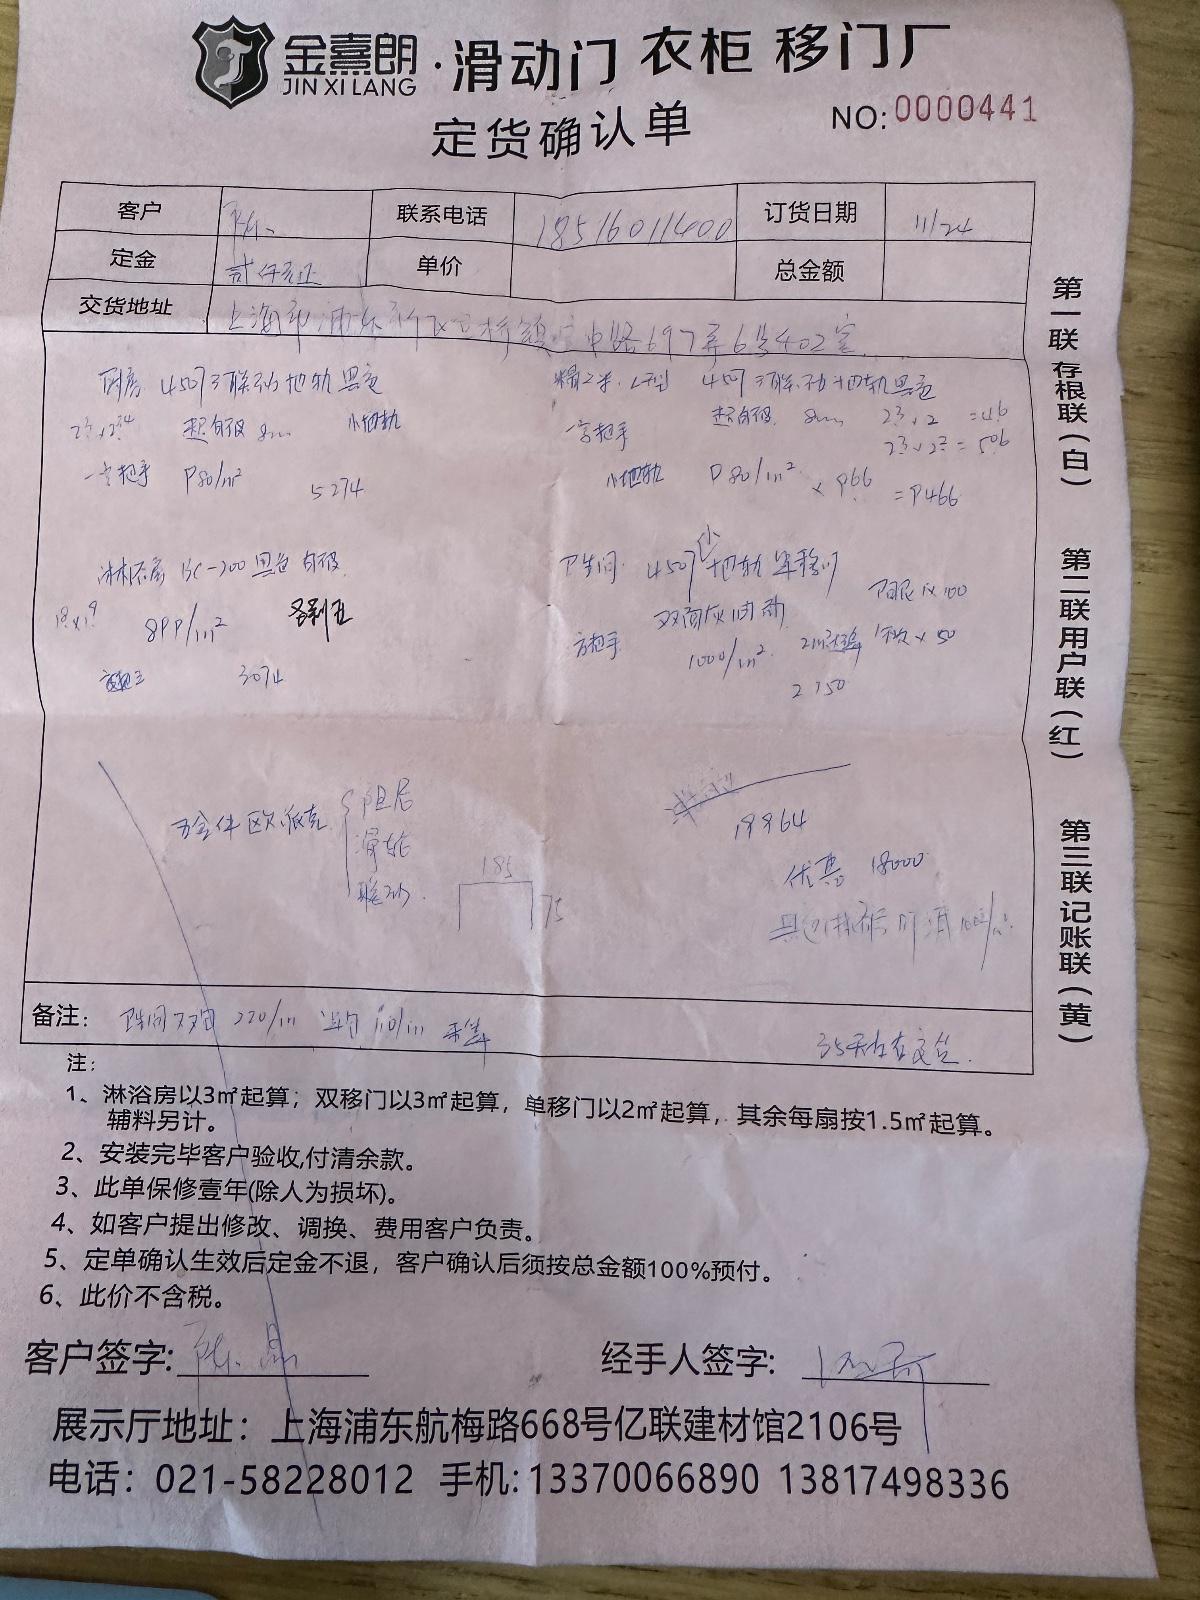 金熹朗
JIN XI LANG
·滑动门 衣柜 移门厂
定货确认单
NO:0000441
客户 陈 联系电话 18516011400 订货日期 11/24
定金 贰仟元正 单价 总金额
交货地址 上海市浦东新区 镇 中路697弄6号402室
厨房 450 三联动地轨黑色
超白玻 8mm 小地轨
一字把手 980/m² 5274
L型 450 三联动地轨黑色
一字把手 超白玻 8mm
小地轨 980/m² × 966 = 9466
淋浴房 BC-200 黑色 白玻
899/m²
3074
卫生间 450 小地轨 单移门
双面灰油砂
方把手 1000/m²
2150
五金件欧派克 阻尼
滑轮
联动
185
75
优惠 18000
备注: 卫生间双包 220/m 单包 110/m
35天左右交货.
第一联存根联(白)
第二联用户联(红)
第三联记账联(黄)
注:
1、淋浴房以3㎡起算；双移门以3㎡起算，单移门以2㎡起算，其余每扇按1.5㎡起算。
辅料另计。
2、安装完毕客户验收,付清余款。
3、此单保修壹年(除人为损坏)。
4、如客户提出修改、调换、费用客户负责。
5、定单确认生效后定金不退，客户确认后须按总金额100%预付。
6、此价不含税。
客户签字: 陈晶 经手人签字:
展示厅地址：上海浦东航梅路668号亿联建材馆2106号
电话：021-58228012 手机:13370066890 13817498336